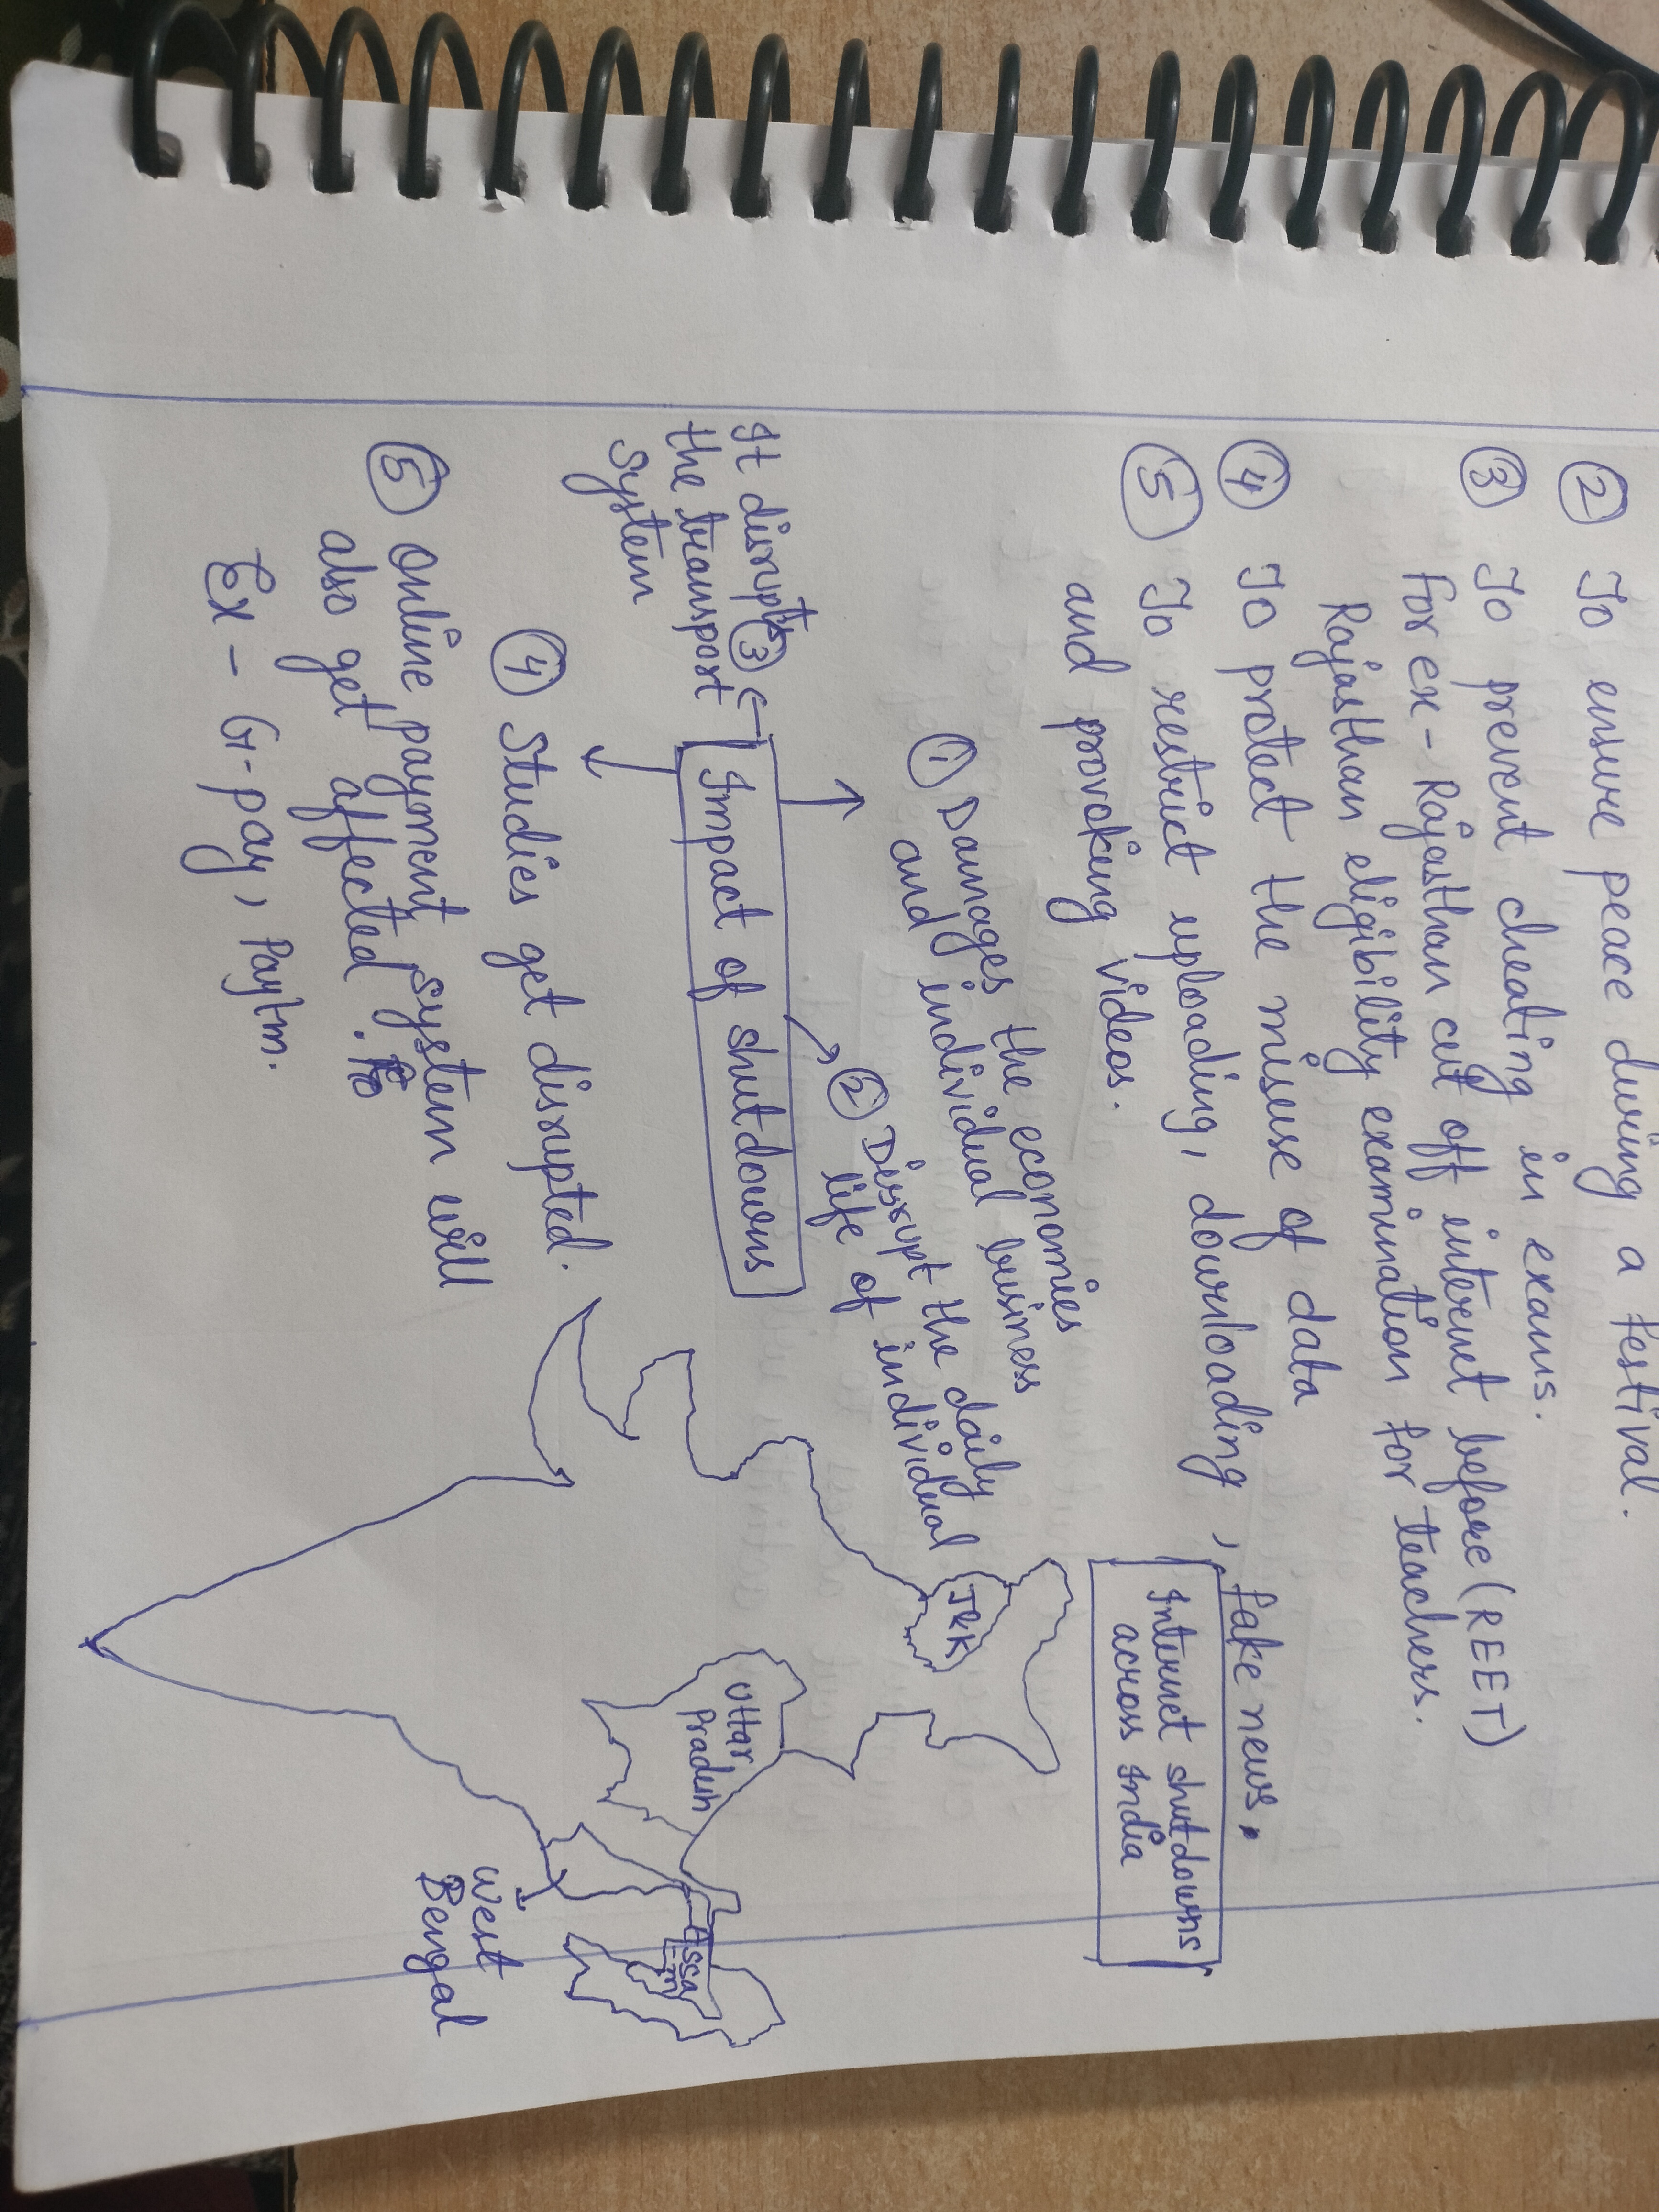 ② To ensure peace during a festival.
③ To prevent cheating in exams.
For ex - Rajasthan cut off internet before (REET)
Rajasthan eligibility examination for teachers.
④ To protect the misuse of data
⑤ To restrict uploading, downloading, fake news,
and provoking videos.
Internet shutdowns
across India
① Damages the economies
and individual business
② Disrupt the daily
life of individual
Impact of shutdowns
It disrupts ③
the transport
system
④ Studies get disrupted.
⑤ Online payment system will
also get affected.
Ex - G-pay, Paytm.
J&K
Uttar
Pradesh
Assa
-m
West
Bengal